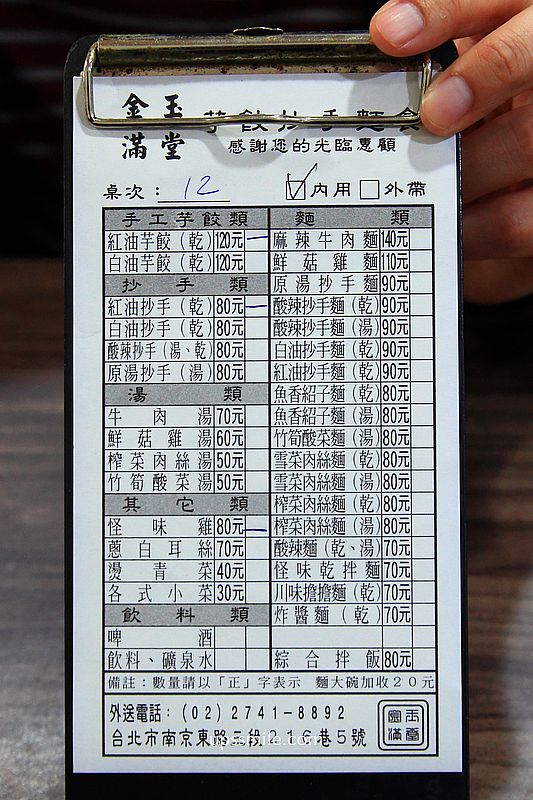 金玉
滿堂 芋餃抄手麵食
感謝您的光臨惠顧
桌次：12 ✓內用 □外帶
手工芋餃類
紅油芋餃（乾） 120元 一
白油芋餃（乾） 120元
抄手類
紅油抄手（乾） 80元 一
白油抄手（乾） 80元
酸辣抄手（湯、乾） 80元
原湯抄手（湯） 80元
湯類
牛肉湯 70元
鮮菇雞湯 60元
榨菜肉絲湯 50元
竹筍酸菜湯 50元
其它類
怪味雞 80元 一
蔥白耳絲 70元
燙青菜 40元
各式小菜 30元
飲料類
啤酒
飲料、礦泉水
麵類
麻辣牛肉麵 140元
鮮菇雞麵 110元
原湯抄手麵 90元
酸辣抄手麵（乾） 90元
酸辣抄手麵（湯） 90元
白油抄手麵（乾） 90元
紅油抄手麵（乾） 90元
魚香紹子麵（乾） 80元
魚香紹子麵（湯） 80元
竹筍酸菜麵（湯） 80元
雪菜肉絲麵（乾） 80元
雪菜肉絲麵（湯） 80元
榨菜肉絲麵（乾） 80元
榨菜肉絲麵（湯） 80元
酸辣麵（乾、湯） 70元
怪味乾拌麵 70元
川味擔擔麵（乾） 70元
炸醬麵（乾） 70元
綜合拌飯 80元
備註：數量請以「正」字表示 麵大碗加收20元
外送電話：(02)2741-8892
台北市南京東路三段216巷5號
金玉滿堂